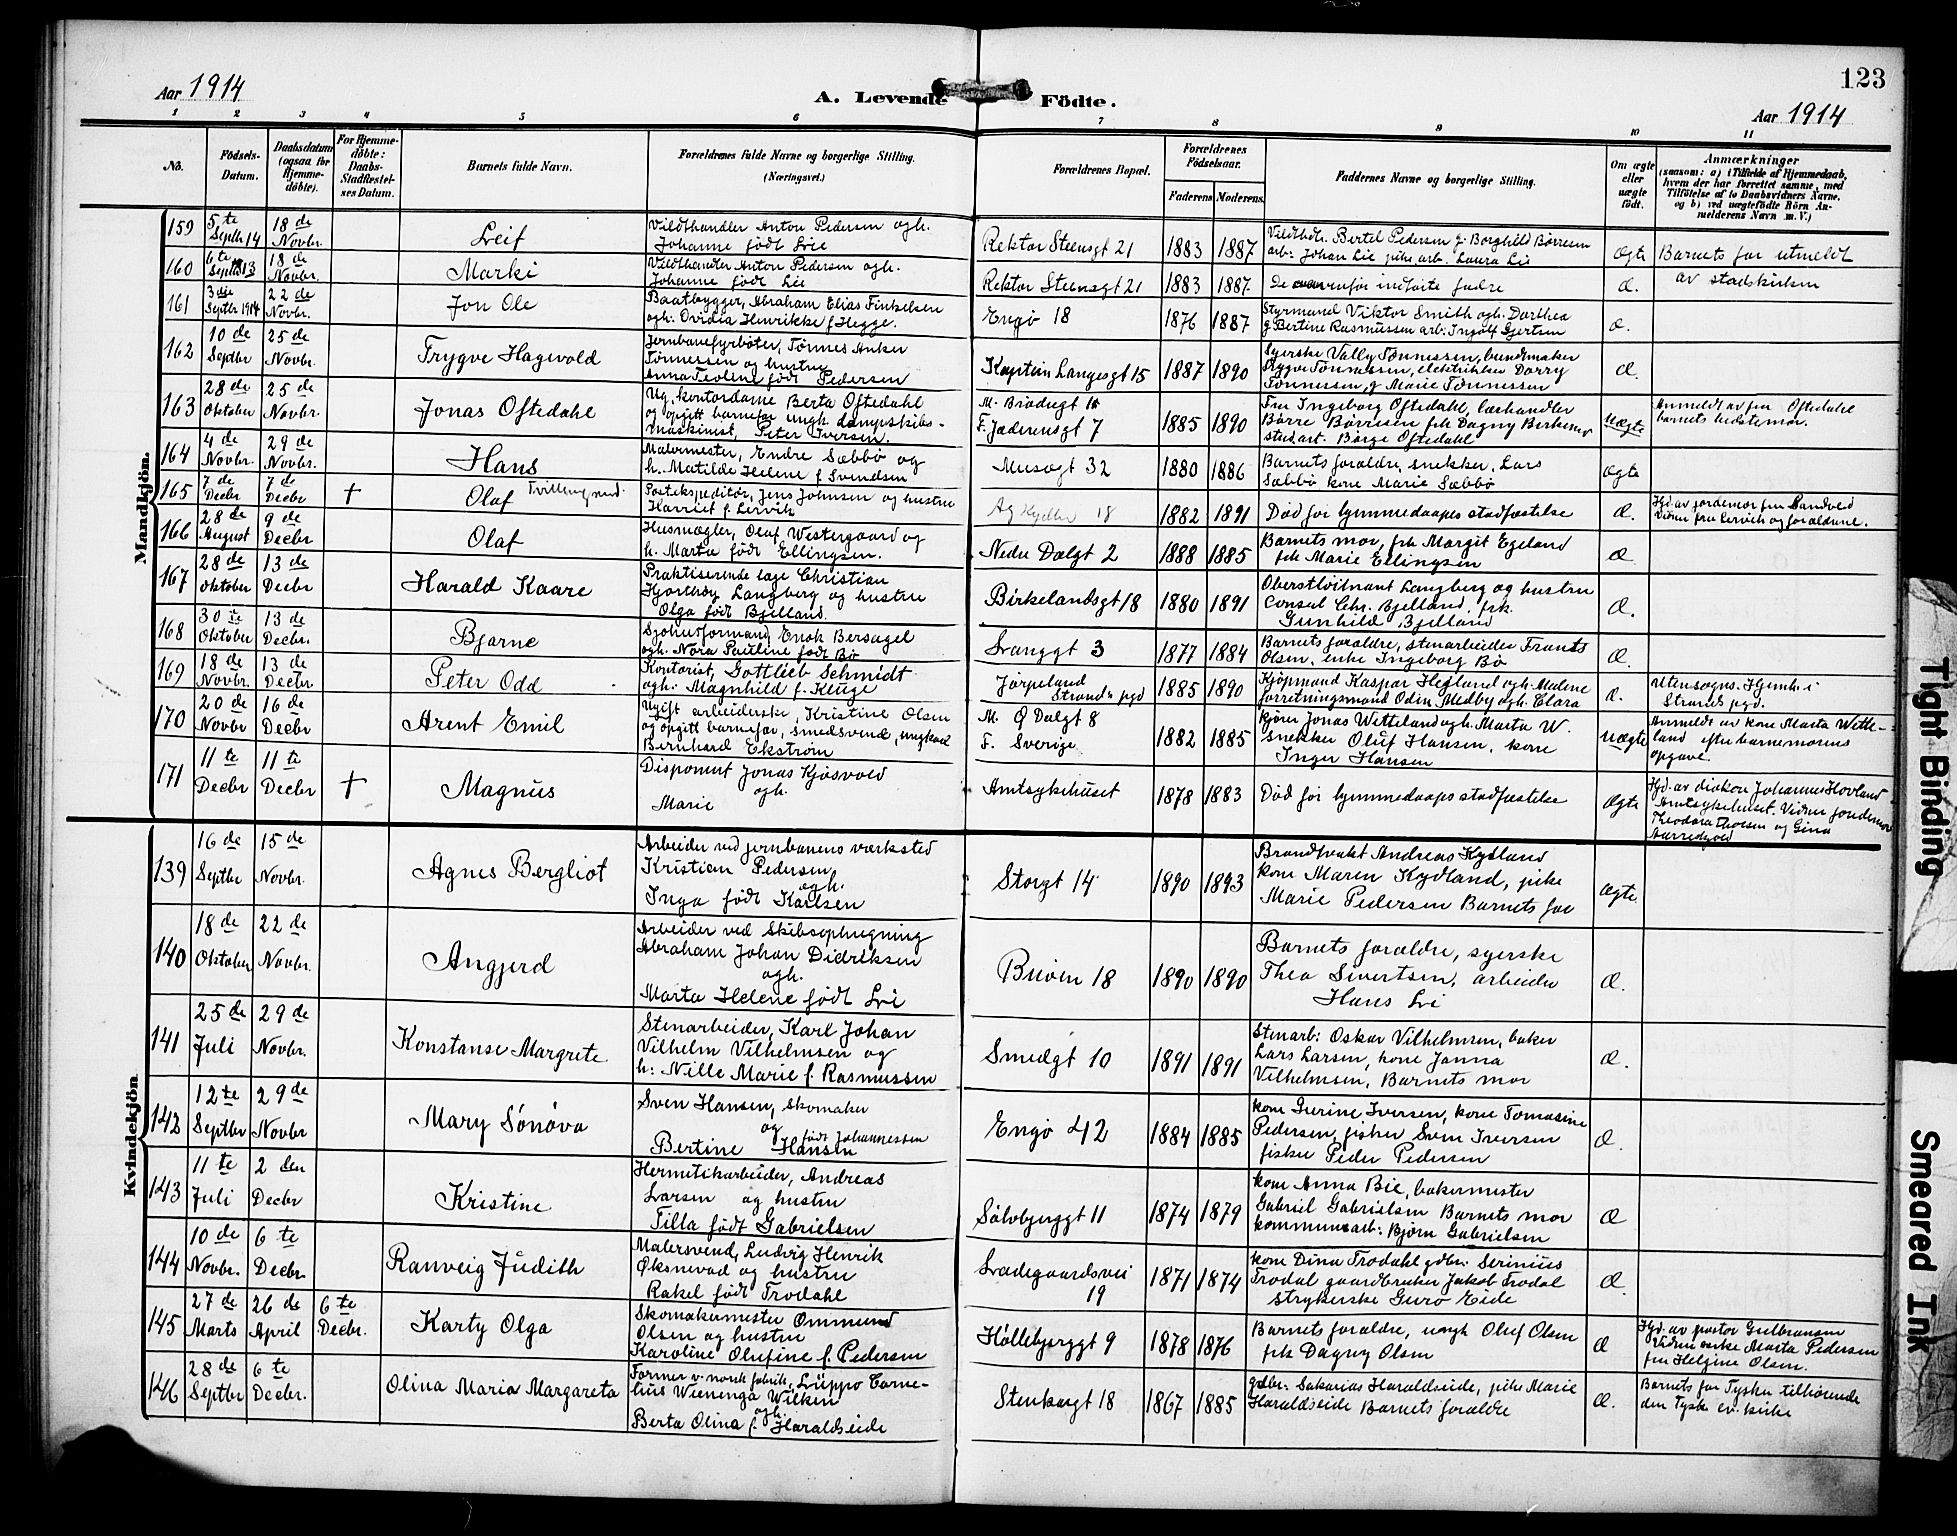 123
Aar 1914
A. Levende Födte.
Aar 1914
1 2 3 4 5 6 7 8 9 10 11
No.
Födsels-
Datum.
Daabsdatum
(ogsaa for
Hjemme-
döbte).
For Hjemme-
döbte:
Daabs-
Stadfæstel-
ses Datum.
Barnets fulde Navn.
Forældrenes fulde Navne og borgerlige Stilling.
(Næringsvei.)
Forældrenes Bopæl.
Forældrenes
Födselsaar.
Faderens Moderens
Faddernes Navne og borgerlige Stilling.
Om ægte
eller
uægte
födt.
Anmærkninger
(saasom: a) i Tilfælde af Hjemmedaab,
hvem der har forrettet samme, med
Tilföielse af to Daabsvidners Navne.
og b) ved uægtefödte Börn An-
melderens Navn m. V.)
Mandkjön.
159 5te Septbr 14 18de Novbr. Leif
Vildthandler Anton Pedersen ogh.
Johanne født Lie
Rektor Steensgt 21 1883 1887
Vildthdl. Bertel Pedersen g. Borghild Børresen
arb: Johan Lie pike arb. Laura Lie
Ægte
Barnets far utmeldt
av statskirken
160 6te Septbr 13 18de Novbr. Marki
Vildthandler Anton Pedersen ogh.
Johanne født Lie
Rektor Steensgt 21 1883 1887
De ovenfor indførte fadre
Æ.
161 3die Septbr 1914 22de Novbr. Jon Ole
Baatbygger, Abraham Elias Finkelsen
ogh. Ovidia Henrikke f. Hegge.
Engø 18 1876 1887
Styrmand Viktor Smith ogh. Dorthea
g Bertine Rasmussen arb: Ingolf Gjertsen
Æ.
162 10de Septbr 25de Novbr. Trygve Hagevold
Jernbanefyrbøter, Tønnes Anker
Tønnessen og hustru
Anna Teoline født Pedersen
Kaptein Langesgt 15 1887 1890
Syerske Vally Tønnessen, bundtmaker
Trygve Tønnessen, elektriker Dorry
Tønnessen, g Marie Tønnessen
Æ.
163 28de Oktober 25de Novbr. Jonas Oftedahl
Ug. kontordame Berta Oftedahl
og opgitt barnefar ungk dampskibs-
maskinist, Peter Iversen.
M. Bredegt 1
F. Jæderensgt 7 1885 1890
Fru Ingeborg Oftedahl, lærhandler
Børre Børresen frk Dagny
stud.art. Børge Oftedahl
Uægte
Anmeldt av fru Oftedahl
barnets bedstemor.
164 4de Novbr. 29de Novbr. Hans
Malermester, Endre Sæbbø og
h. Matilde Helene f. Svendsen
Musegt 32 1880 1886
Barnets forældre, snekker, Lars
Sæbbø kone Marie Sæbbø
Ægte
165 7de Decbr 7de Decbr + Olaf Tvillingsønd.
Postekspeditør, Jens Johnsen og hustru
Harriet f. Lervik
18 1882 1891
Død før hjemmedaapes stadfæstelse
Æ.
Hjd. av jordemor fru Sandved
Vidner fru Lervik og forældrene.
166 28de August 9de Decbr Olaf
Husmægler, Olaf Westergaard og
h. Marta født Ellingsen.
Nedre Dalgt 2 1888 1885
Barnets mor, frk Margit Egeland
frk Marie Ellingsen
Æ
167 28de Oktober 13de Decbr Harald Kaare
Praktiserende læge Christian
Hjorthøy Langberg og hustru
Olga født Bjelland.
Birkelandsgt 18 1880 1891
Oberstløitnant Langberg og hustru
Consul Chr. Bjelland, frk.
Gunhild Bjelland
Æ.
168 30te Oktober 13de Decbr. Bjarne
Sjøhusformand, Enok Bersagel
ogh. Nora Pauline født Bø
Lranggt 3 1877 1884
Barnets forældre, stenarbeider Frants
Olsen, enke Ingeborg Bø
Æ.
169 18de Novbr. 13de Decbr. Peter Odd
Kontorist, Gottlieb Schmidt
ogh. Magnhild f. Kluge
Jørpeland
Strands pgd 1885 1890
Kjøpmand Kaspar Hegland ogh. Malene
forretningsmand Odin Medby ogh. Clara
Æ.
Utensogns. Hjemh. i
Strands pgd.
170 20de Novbr 16de Decbr Arent Emil
Ugift arbeiderske, Kristine Olsen
og opgitt barnefar, smedsvend, ungkarl
Bernhard Ekstrøm
M. Ø Dalgt 8
F. Sverige 1882 1885
kjører Jonas Wetteland ogh. Marta W.
snekker Oluf Hansen, kone
Inger Hansen
Uægte
Anmeldt av kone Marta Wette-
land efter barnemorens
opgave
171 11te Decbr 11te Decbr + Magnus
Disponent Jonas Kjøsvold
ogh.
Marie
Amtsykehuset 1878 1883
Død før hjemmedaapes stadfæstelse
Ægte
Hjd. av diakon Johannes Hovland
Amtsykehuset. Vidner jordemor
Theodora Thorsen og Gina
Kvindekjön
139 16de Septbr 15de Novbr. Agnes Bergliot
Arbeider ved jernbanens værksted
Kristian Pedersen
ogh.
Inga født Karlsen
Storgt 14 1890 1893
Brandvakt Andreas Kydland
kone Maren Kydland, pike
Marie Pedersen Barnets far
Ægte.
140 18de Oktober 22de Novbr. Angjerd
Arbeider ved Skibsophugning
Abraham Johan Didriksen
ogh.
Marta Helene født Lie
Brøen 18 1890 1890
Barnets forældre, syerske
Thea Sivertsen, arbeider
Hans Lie
Æ.
141 25de Juli 29de Novbr. Konstanse Margrete
Stenarbeider, Karl Johan
Vilhelm Vilhelmsen og
h: Nille Marie f. Rasmussen
Smedgt 10 1891 1891
Stenarb: Oskar Vilhelmsen, baker
Lars Larsen, kone Janna
Vilhelmsen, Barnets mor
Æ.
142 12te Septbr 29de Novbr Mary Sønøva
Sven Hansen, skomaker
og
født Johannessen
Bertine Hansen
Engø 42 1884 1885
kone Gurine Iversen, kone Tomasine
Pedersen, fisker Sven Iversen
fisker Peder Pedersen
Æ.
143 11te Juli 2den Decbr Kristine
Hermetikarbeider, Andreas
Larsen og hustru
Tilla født Gabrielsen
Sølvbjerggt 11 1874 1879
kone Anna Bie, bakermester
Gabriel Gabrielsen Barnets mor
kommunearb: Bjørn Gabrielsen
Æ
144 10de Novbr. 6te Decbr. Ranveig Judith
Malersvend, Ludvig Henrik
Øksnevad og hustru
Rakel født Trodahl
Ladegaardsvei
19 1871 1874
kone Dina Trodahl gdbr. Serinius
Trodal gaardbruker Jakob Trodal
strykerske Guro Eide
Æ.
145 27de Marts 26de April 6te Decbr. Karty Olga
Skomakermester Ommund
Olsen og hustru
Karoline Olufine f. Pedersen
Høllebjerggt 9 1878 1876
Barnets forældre, ungk Oluf Olsen
frk Dagny Olsen
Æ
Hjd. av pastor Gulbransen
Vidner enke Marta Pedersen
fru Helgine Olsen.
146 28de Septbr 6te Decbr. Olina Maria Margareta
Former v. norsk fabrik, Lüppo Corne-
lius Wienenga Wilken
ogh.
Berta Olina f. Haraldseide
Stenkargt 18 1867 1885
gdbr. Sakarias Haraldseide, pike Marie
Haraldseide Barnets forældre
Æ.
Barnets far Tysker tilhørende
den Tyske ev. kirke
Tight Binding
Smeared Ink